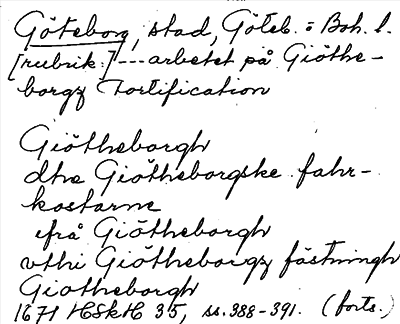 Göteborg, stad, Göteb. o Boh. l.
[rubrik:] --- arbetet på Giöthe-
borgz Fortification
Giötheborgh
dhe Giötheborgske fahr-
kostarne
ifrå Giötheborgh
vthi Giötheborgz fästningh
Giotheborgh
1671 HSkH 35, ss. 388-391. (forts.)